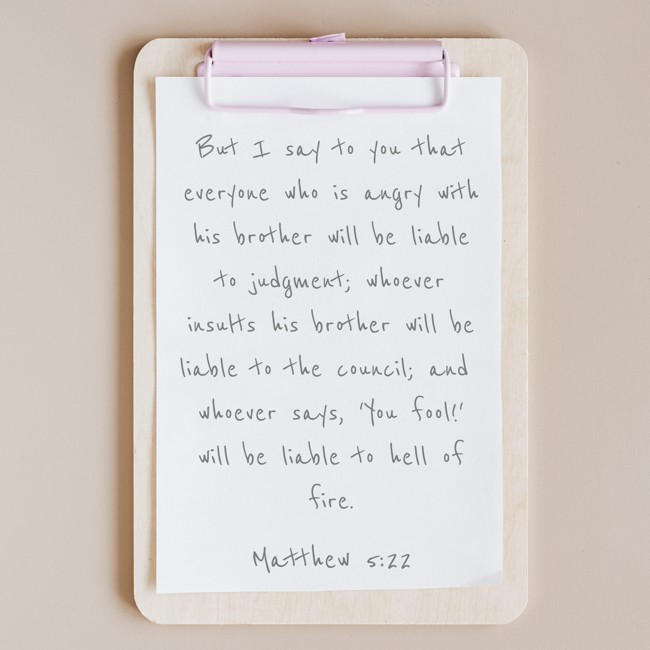 But I say to you that
everyone who is angry with
his brother will be liable
to judgment; whoever
insults his brother will be
liable to the council; and
whoever says, 'You fool!'
will be liable to hell of
fire.
Matthew 5:22